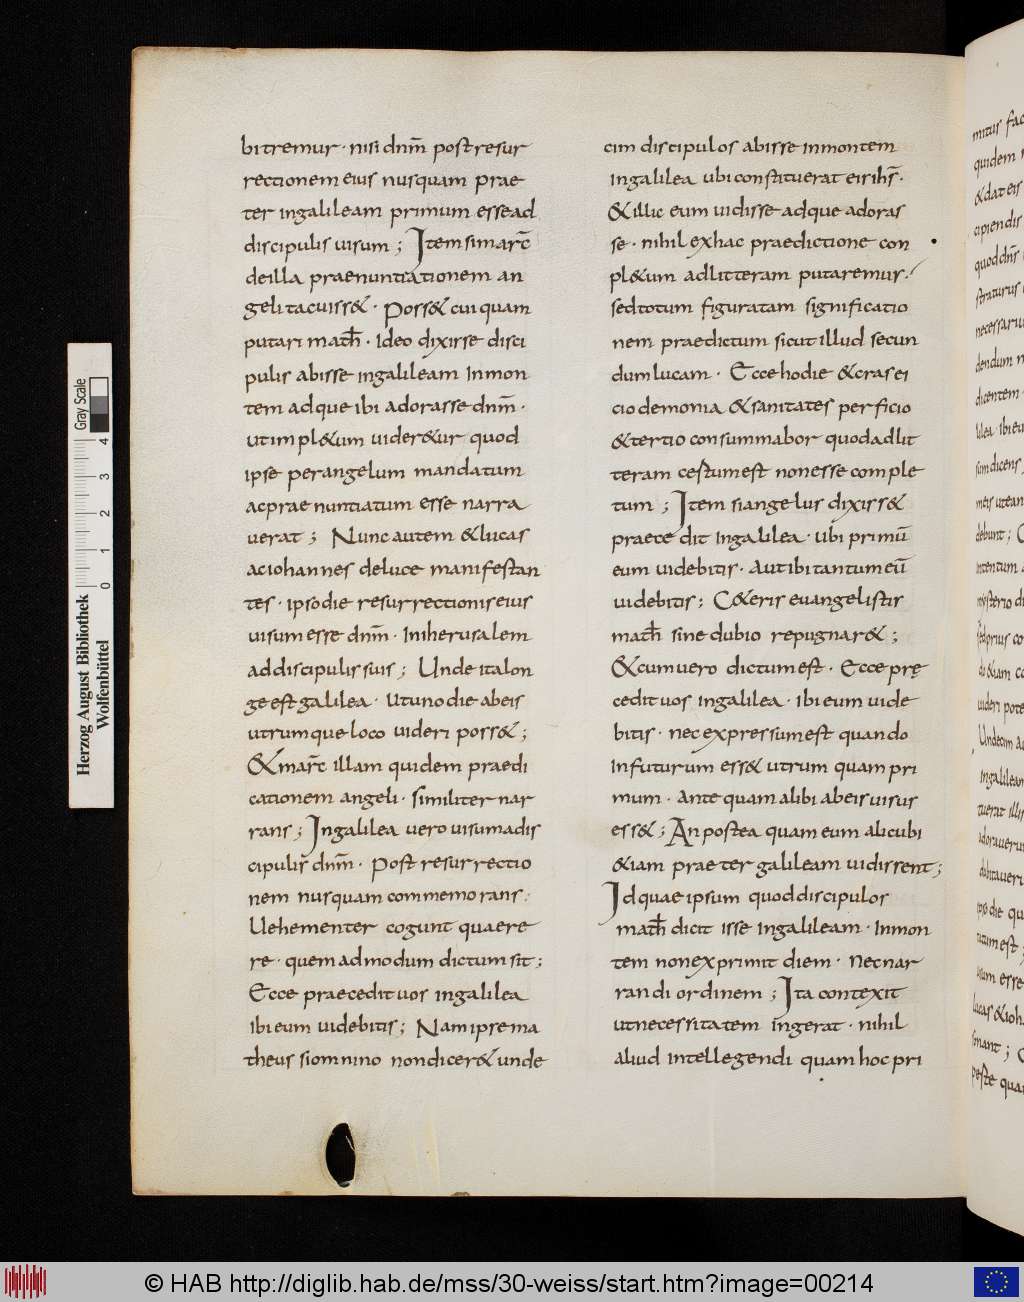 bitremur · nisi dnm̄ post resur
rectionem eius nusquam prae
ter ingalileam primum essead
discipulis uisum ; Item simarc̄
deilla praenuntiationem an
geli tacuiss& · Poss& cuiquam
putari math̄ · ideo dixisse disci
pulis abisse ingalileam Inmon
tem adque ibi adorasse dnm̄ ·
ut impl&um uider&ur quod
ipse perangelum mandatum
acpraenuntiatum esse narra
uerat ; Nunc autem &lucas
aciohannes deluce manifestan
tes · ipsodie resurrectioniseius
uisum esse dnm̄ · Iniherusalem
addiscipulis suis ; Unde italon
ge est galilea · Utunodie abeis
utrumque loco uideri poss& ;
&marc̄ illam quidem praedi
cationem angeli · similiter nar
rans ; Ingalilea uero uisumadis
cipulis dnm̄ · Post resurrectio
nem nusquam commemorans ·
Uehementer cogunt quaere
re · quemadmodum dictum sit ;
Ecce praecedit uos ingalilea
Ibi eum uidebitis ; Nam ipse ma
theus siomnino nondicer& unde
cim discipulos abisse inmontem
Ingalilea ubi constituerat eis ihs̄ ·
&illic eum uidisse adque adoras
se · nihil exhac praedictione con
pl&um adlitteram putaremus ·
sedtotum figuratam significatio
nem praedictum sicut illud secun
dum lucam · Ecce hodie &cras ei
cio demonia &sanitates perficio
&tertio consummabor quodadlit
teram certumest nonesse comple
tum ; Item siangelus dixiss&
praecedit ingalilea · ubi primū
eum uidebitis · Aut ibi tantum eū
uidebitis ; C&eris euangelistis
math̄ sine dubio repugnar& ;
&cumuero dictum est · Ecce prę
cedit uos ingalilea · Ibi eum uide
bitis · nec expressum est quando
Infuturum ess& utrum quam pri
mum · ante quam alibi abeis uisus
ess& ; An postea quam eum alicubi
&iam praeter galileam uidissent ;
Id quae ipsum quod discipulos
math̄ dicit isse ingalileam · Inmon
tem non exprimit diem · Necnar
randi ordinem ; Ita contexit
utnecessitatem ingerat · nihil
aliud intellegendi quam hoc pri
quidem
&dat eis
cipiendis
quod dn̄s
straturus
necessariu
dendum
dicentem
debunt ;
uideri pote
Undecim
Ingalileam
tuerat
adorauerun
Gray Scale
0 1 2 3 4
Herzog August Bibliothek
Wolfenbüttel
© HAB http://diglib.hab.de/mss/30-weiss/start.htm?image=00214